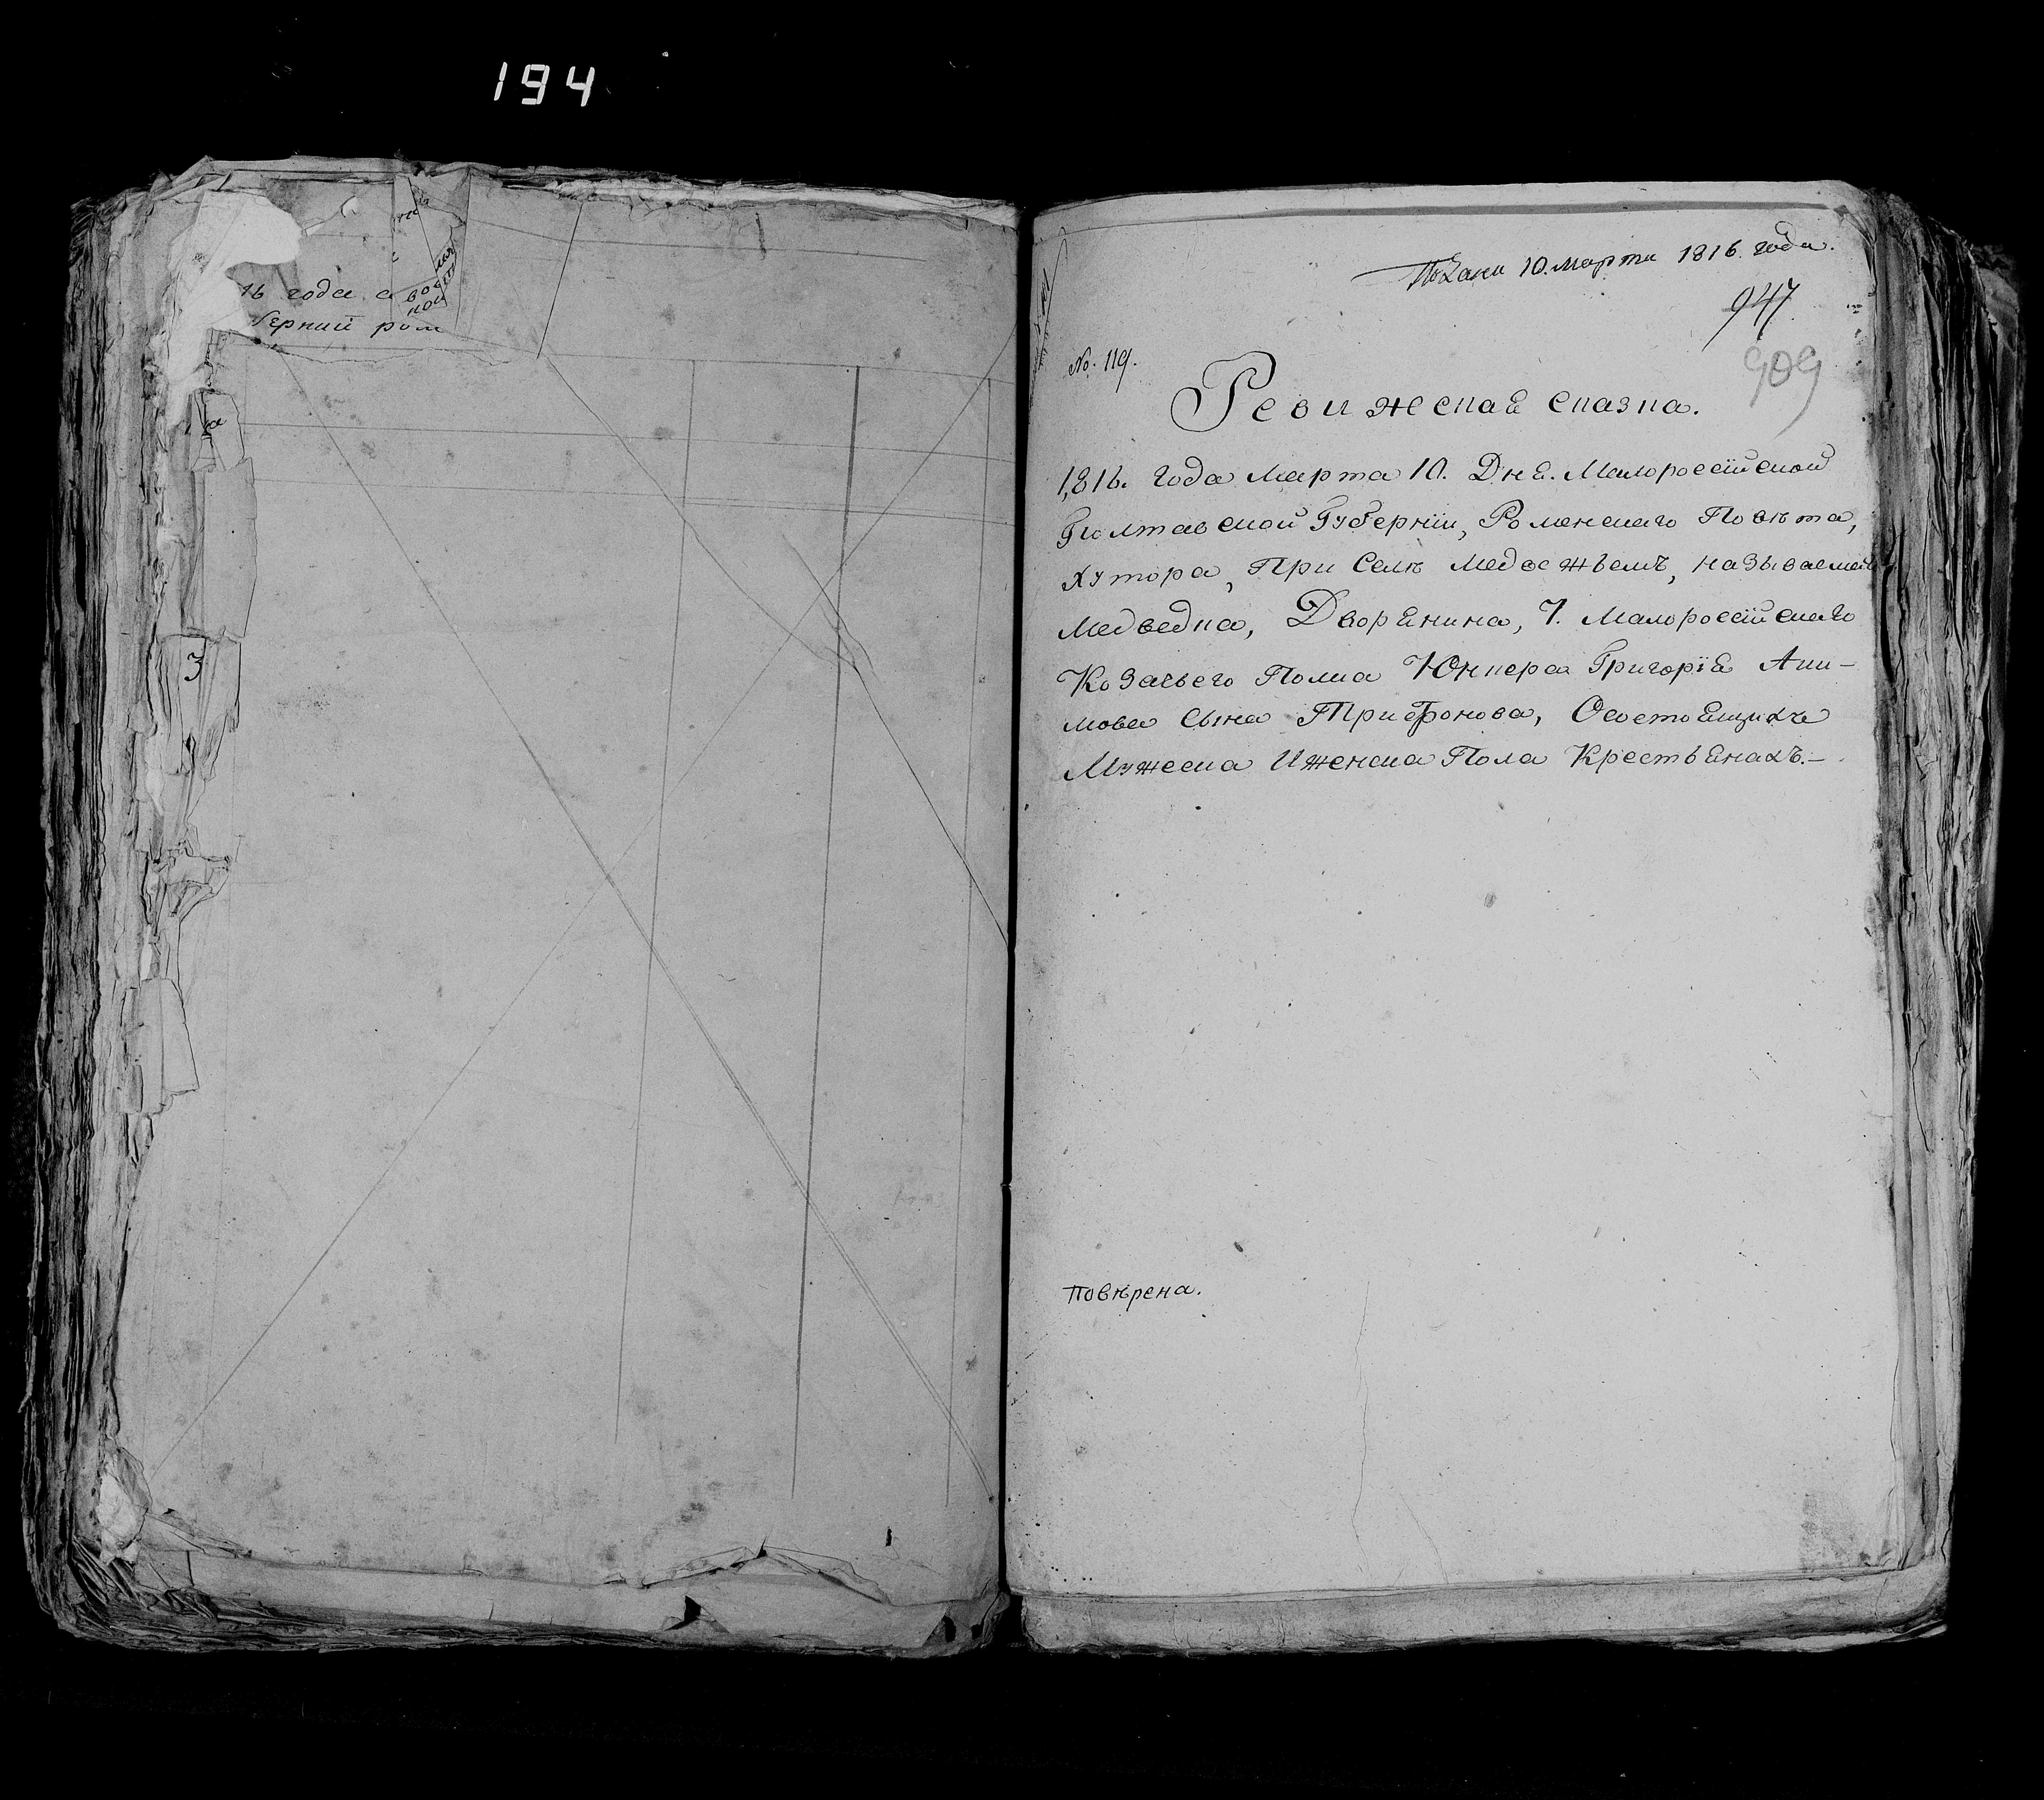 194
16 года
Подана 10. марта 1816. года.
947
909
No. 119.
Ревижская сказка.
1816. года марта 10. Дня. Малоросcійской
Полтавской Губерніи, Роменского Повѣта,
хутора, При Селѣ Медвежьемъ, называемаго
Медведка, Дворянина, 7. Малороссійскаго
Козачьего Полка Юнкера Григорія Аки-
мова Сына Трифонова, Осостоящихъ
Мужеска Иженска Пола Крестьянахъ.–
повѣрена.